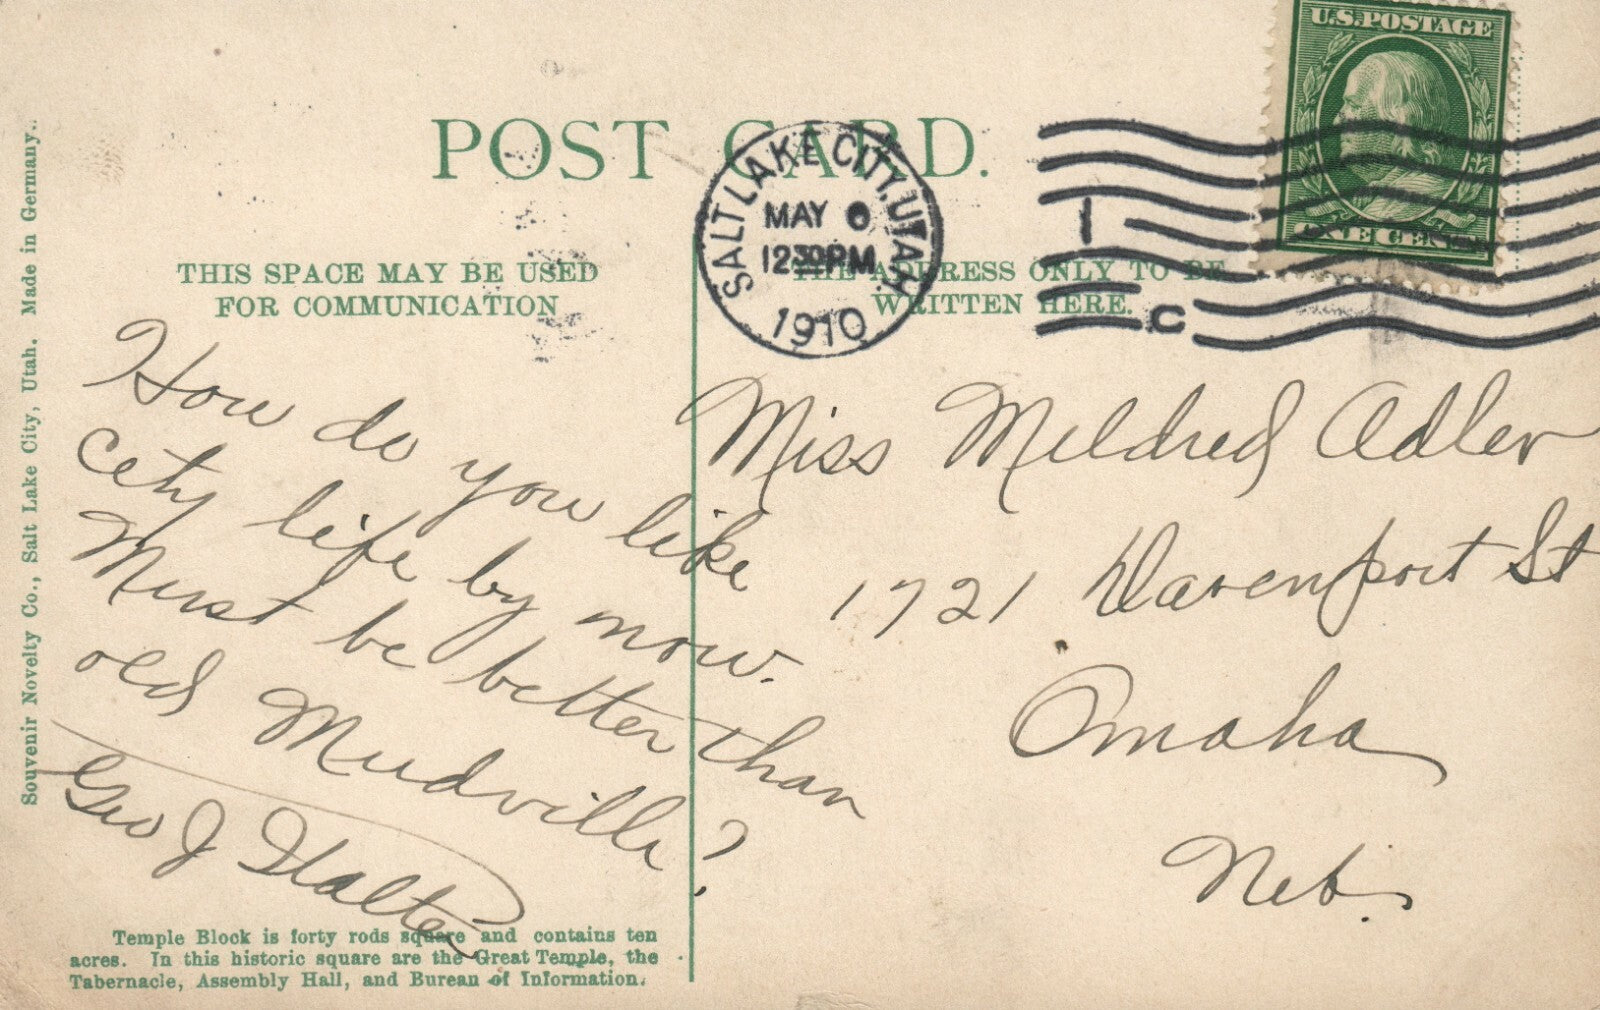 U.S. POSTAGE
ONE CENT
POST CARD.
SALT LAKE CITY, UTAH.
MAY 6
12 30 PM
1910
1
C
THIS SPACE MAY BE USED
FOR COMMUNICATION
THE ADDRESS ONLY TO BE
WRITTEN HERE.
How do you like
city life by now.
Must be better than
old Mudville?
Geo J
Miss Mildred Adler
1721 Davenport St
Omaha
Neb.
Temple Block is forty rods square and contains ten
acres. In this historic square are the Great Temple, the
Tabernacle, Assembly Hall, and Bureau of Information.
Souvenir Novelty Co., Salt Lake City, Utah. Made in Germany.